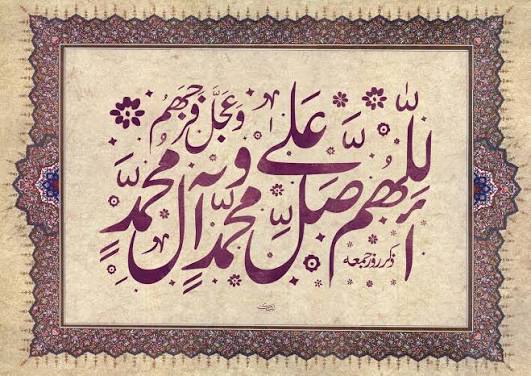 اللهم صل علی محمد و آل محمد
و عجل فرجهم
ذکر روز جمعه